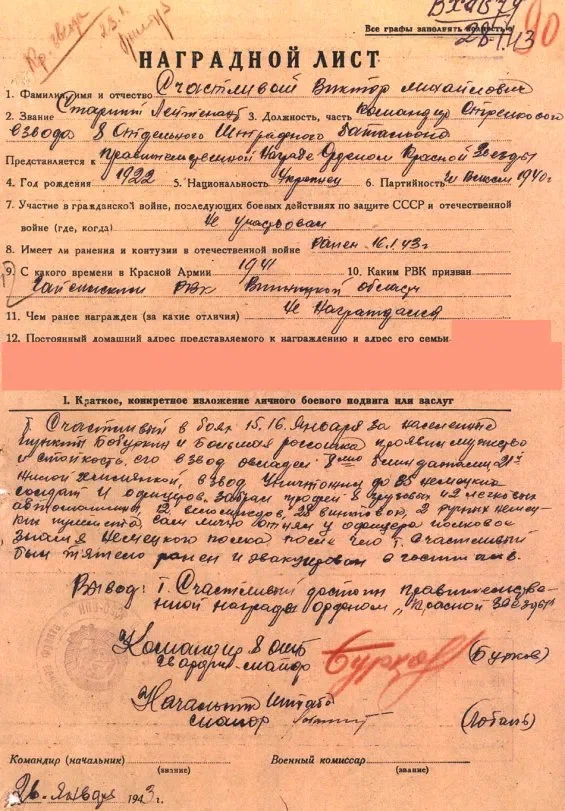 Все графы заполнять полностью
28.1.43
90
НАГРАДНОЙ ЛИСТ
1. Фамилия, имя и отчество Счастливый Виктор Михайлович
2. Звание Старший Лейтенант 3. Должность, часть командир Стрелкового
взвода 8 Отдельного Штрафного батальона
Представляется к правительственной Награде Орденом Красной Звезды
4. Год рождения 1922 5. Национальность Украинец 6. Партийность чл ВЛКСМ 1940г
7. Участие в гражданской войне, последующих боевых действиях по защите СССР и отечественной
войне (где, когда) Не участвовал
8. Имеет ли ранения и контузии в отечественной войне Ранен 16.1.43г
9. С какого времени в Красной Армии 1941 10. Каким РВК призван
Гайсинским РВК Винницкой области
11. Чем ранее награжден (за какие отличия) Не Награждался
12. Постоянный домашний адрес представляемого к награждению и адрес его семьи
I. Краткое, конкретное изложение личного боевого подвига или заслуг
Т. Счастливый в боях 15.16 Января за населенные
пункты Бабуркин и Большая россошка проявил мужество
и стойкость, его взвод овладел 8 мью блиндажами, 21й
взвод Уничтожил до 85 немецких
солдат и офицеров. Забрал трофей 8 грузовых и 2 легковых
автомашины, 12 велосипедов, 28 винтовок, 2 ручных немец-
ких пулемета, сам лично отнял у офицера полковое
знамя Немецкого полка после чего т. Счастливый
был тяжело ранен и эвакуирован в госпиталь.
Вывод: Т. Счастливый достоин правительстве-
нной награды орденом „Красной Звезды"
Командир 8 ошб
гвардии-майор Бурков (Бурков)
Начальник Штаба
майор (Лобань)
Командир (начальник) Военный комиссар
(звание) (звание)
26 Января 1943 г.